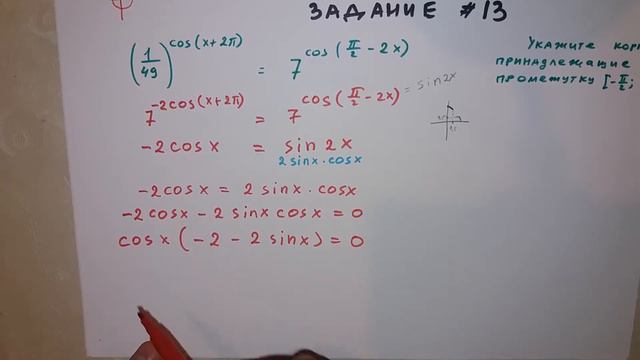 ЗАДАНИЕ #13
(1/49)^cos(x+2π) = 7^cos(π/2 - 2x)
Укажите
принадлежащие
промежутку [-π/2;
7^-2cos(x+2π) = 7^cos(π/2 - 2x) = sin2x
-2cosx = sin2x
2sinx·cosx
-2cosx = 2sinx·cosx
-2cosx - 2sinx cosx = 0
cosx(-2 - 2sinx) = 0